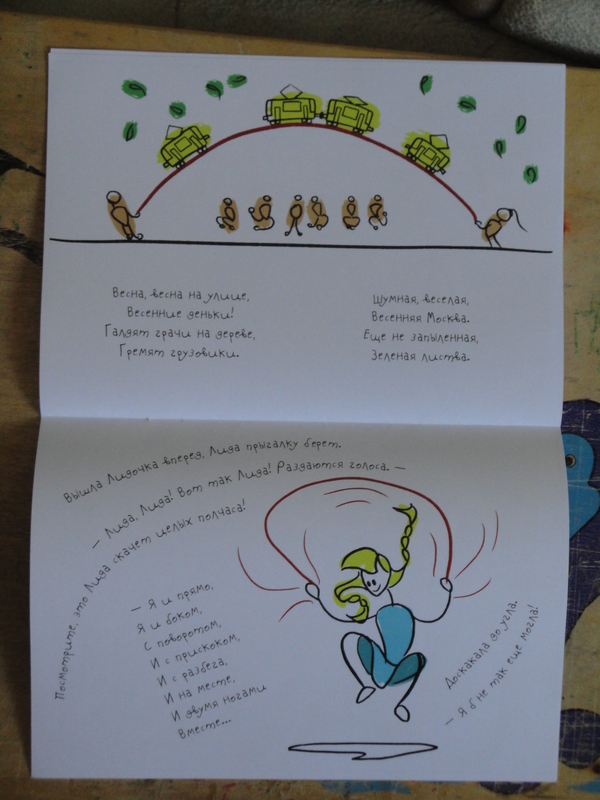 Весна, весна на улице,
Весенние деньки!
Галдят грачи на дереве,
Гремят грузовики.
Шумная, веселая,
Весенняя Москва.
Еще не запыленная,
Зеленая листва.
Вышла Лидочка вперед, Лида прыгалку берет.
— Лида, Лида! Вот так Лида! Раздаются голоса. —
Посмотрите, это Лида скачет целых полчаса!
— Я и прямо,
Я и боком,
С поворотом,
И с прискоком,
И с разбега,
И на месте,
И двумя ногами
Вместе...
Доскакала до угла.
— Я б не так еще могла!